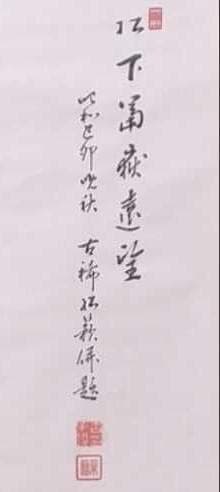 松下富嶽遠望
昭和己卯晩秋　古稀松萩併題